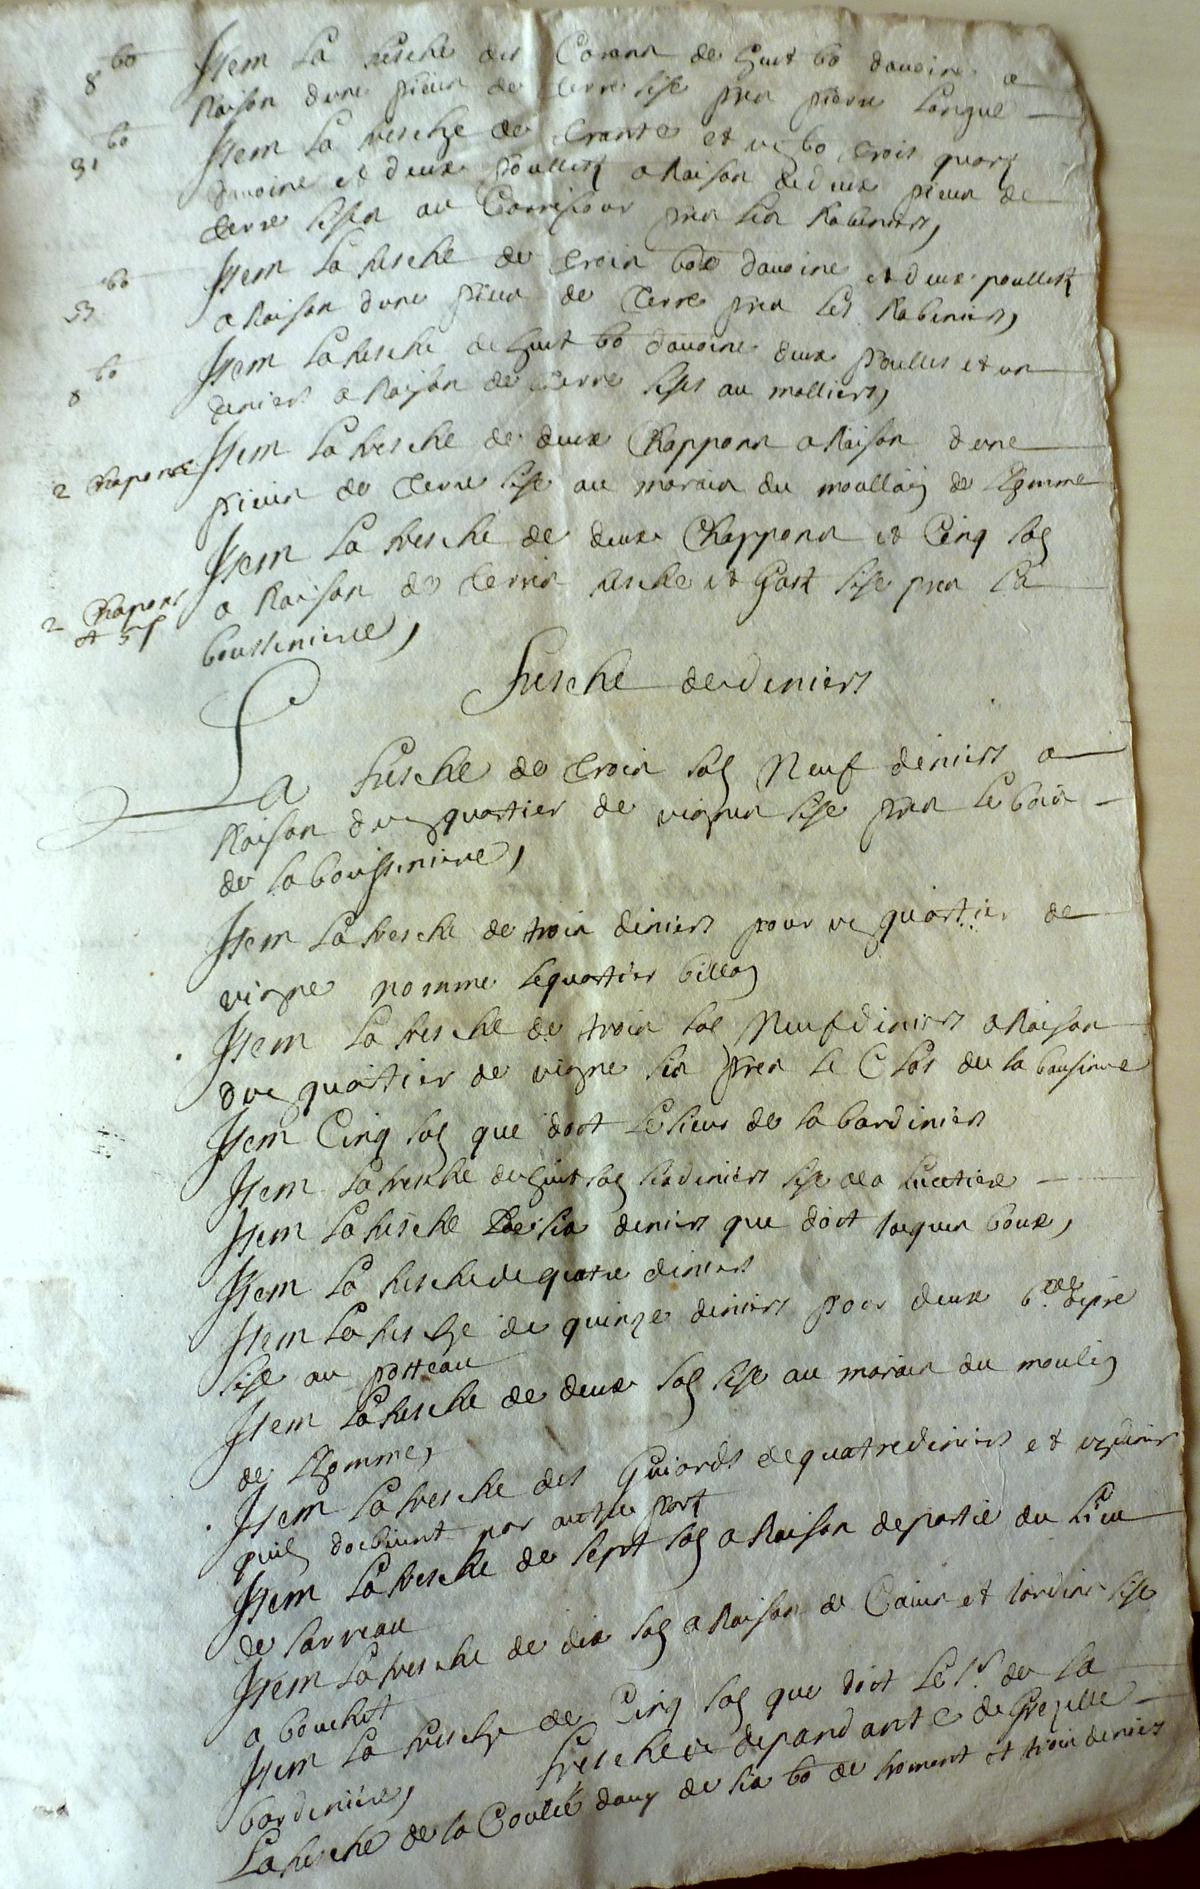 8 bo Item la fresche des Corans de huit bo davoine a
Raison dune piece de terre sise pres pierre Longue
31 bo Item la fresche de trante et ung bo trois quartz
davoine et deux poulletz a Raison de deux pieces de
terre sises au Carrefour pres les Rabiniers,
53 bo Item la fresche de trois box davoine et deux poulletz
a Raison dune piece de terre pres les Rabiniers,
8 bo Item la fresche de huit bo davoine deux poulles et un
deniers a Raison de terre sises au molliers,
2 Chapons Item la fresche de deux Chappons a Raison dune
piece de terre sise au marais du moullaig de Lhomme
Item la fresche de deux Chappons et Cinq solz
2 Chapons et 5 s a Raison de terres fresche et Gast sise pres la
boussiniere,
fresche de deniers
La fresche de trois solz Neuf deniers a
Raison dung quartier de vignes sise pres le bois
de la boussiniere,
Item la fresche de trois deniers pour ung quartier de
vigne nomme le quartier billon
Item la fresche de trois solz Neuf deniers a Raison
dung quartier de vigne sis pres le Clos de la bousiniere
Item Cinq solz que doit le sieur de la bardiniere
Item la fresche de huit solz six deniers sise a la
Item la fresche de six deniers que doit Jacques boux,
Item la fresche de quatre deniers
Item la fresche de quinze deniers pour deux de pre
sise au posteau
Item la fresche de deux solz sise au marais du moulin
de Lhomme,
Item la fresche des Guiards de quatre deniers et ung denier
quilz doibvent par autre part
Item la fresche de sept solz a Raison de partie du Lieu
de Carreau
Item la fresche de dix solz a Raison de Caves et Jardins sise
a bouchet
Item la fresche de Cinq solz que doit le Sr de la
bardiniere, fresches dependante de Grezille
La fresche de la Coulée dang de six bo de froment et trois deniers